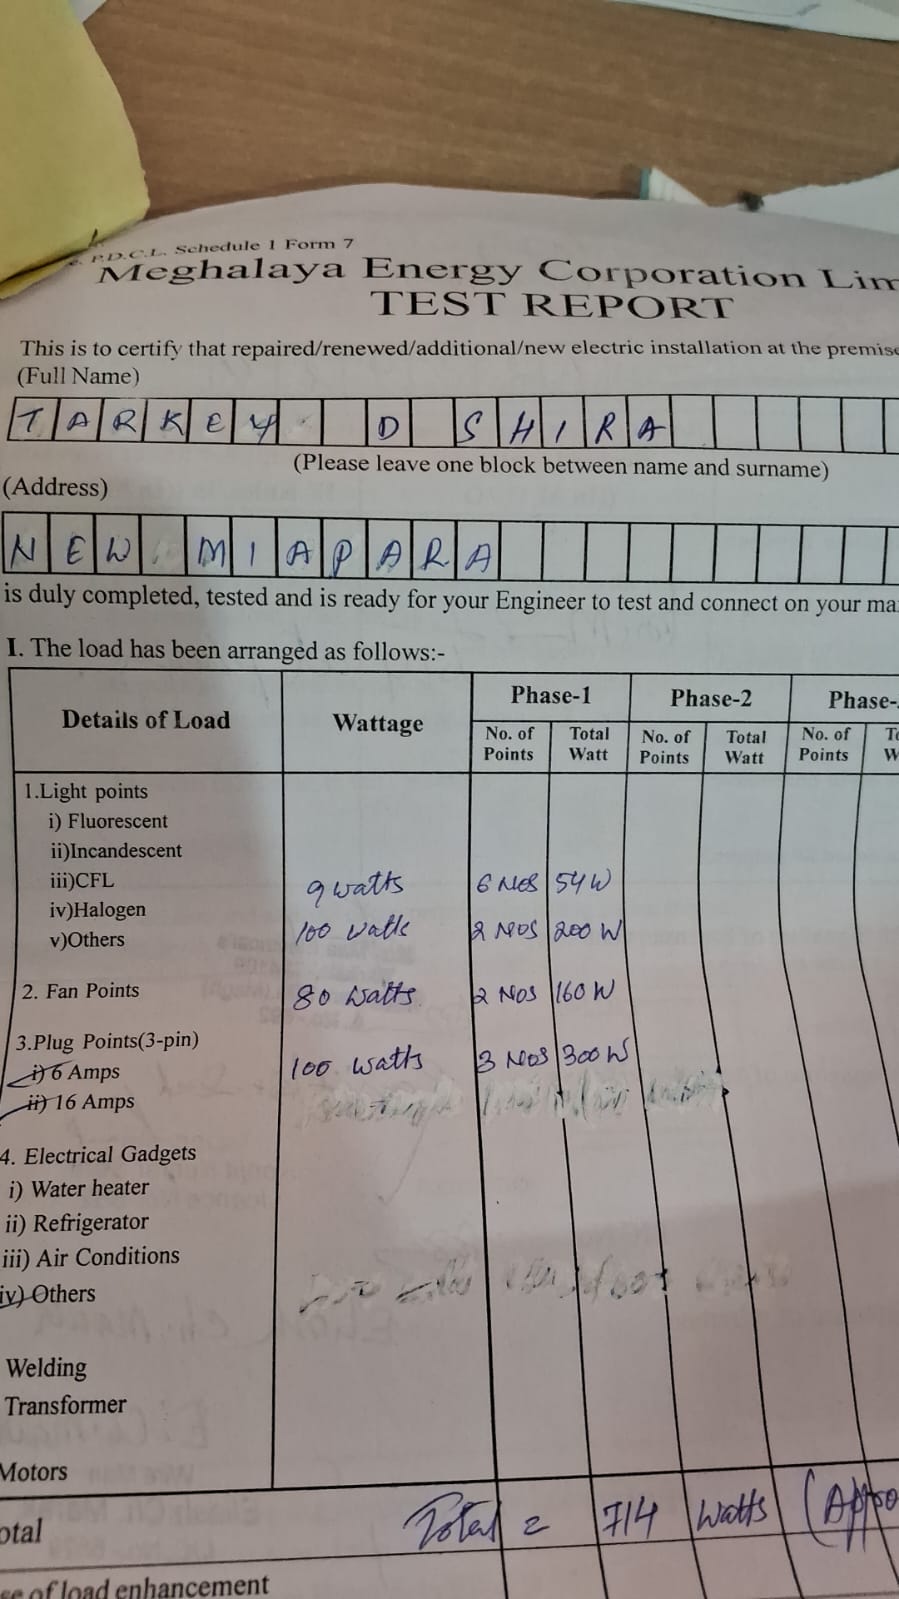 P.D.C.L. Schedule 1 Form 7
Meghalaya Energy Corporation Lim
TEST REPORT
This is to certify that repaired/renewed/additional/new electric installation at the premise
(Full Name)
TARKEY D SHIRA
(Please leave one block between name and surname)
(Address)
NEW MIAPARA
is duly completed, tested and is ready for your Engineer to test and connect on your ma
I. The load has been arranged as follows:-
Details of Load Wattage Phase-1 Phase-2 Phase-
No. of Points Total Watt No. of Points Total Watt No. of Points
1.Light points
i) Fluorescent
ii)Incandescent
iii)CFL 9 watts 6 Nos 54 W
iv)Halogen
v)Others 100 watts 2 Nos 200 W
2. Fan Points 80 watts 2 Nos 160 W
3.Plug Points(3-pin) 100 watts 3 Nos 300 W
i) 6 Amps
ii) 16 Amps
4. Electrical Gadgets
i) Water heater
ii) Refrigerator
iii) Air Conditions
iv) Others
Welding
Transformer
Motors
otal Total = 714 watts (Appro
se of load enhancement